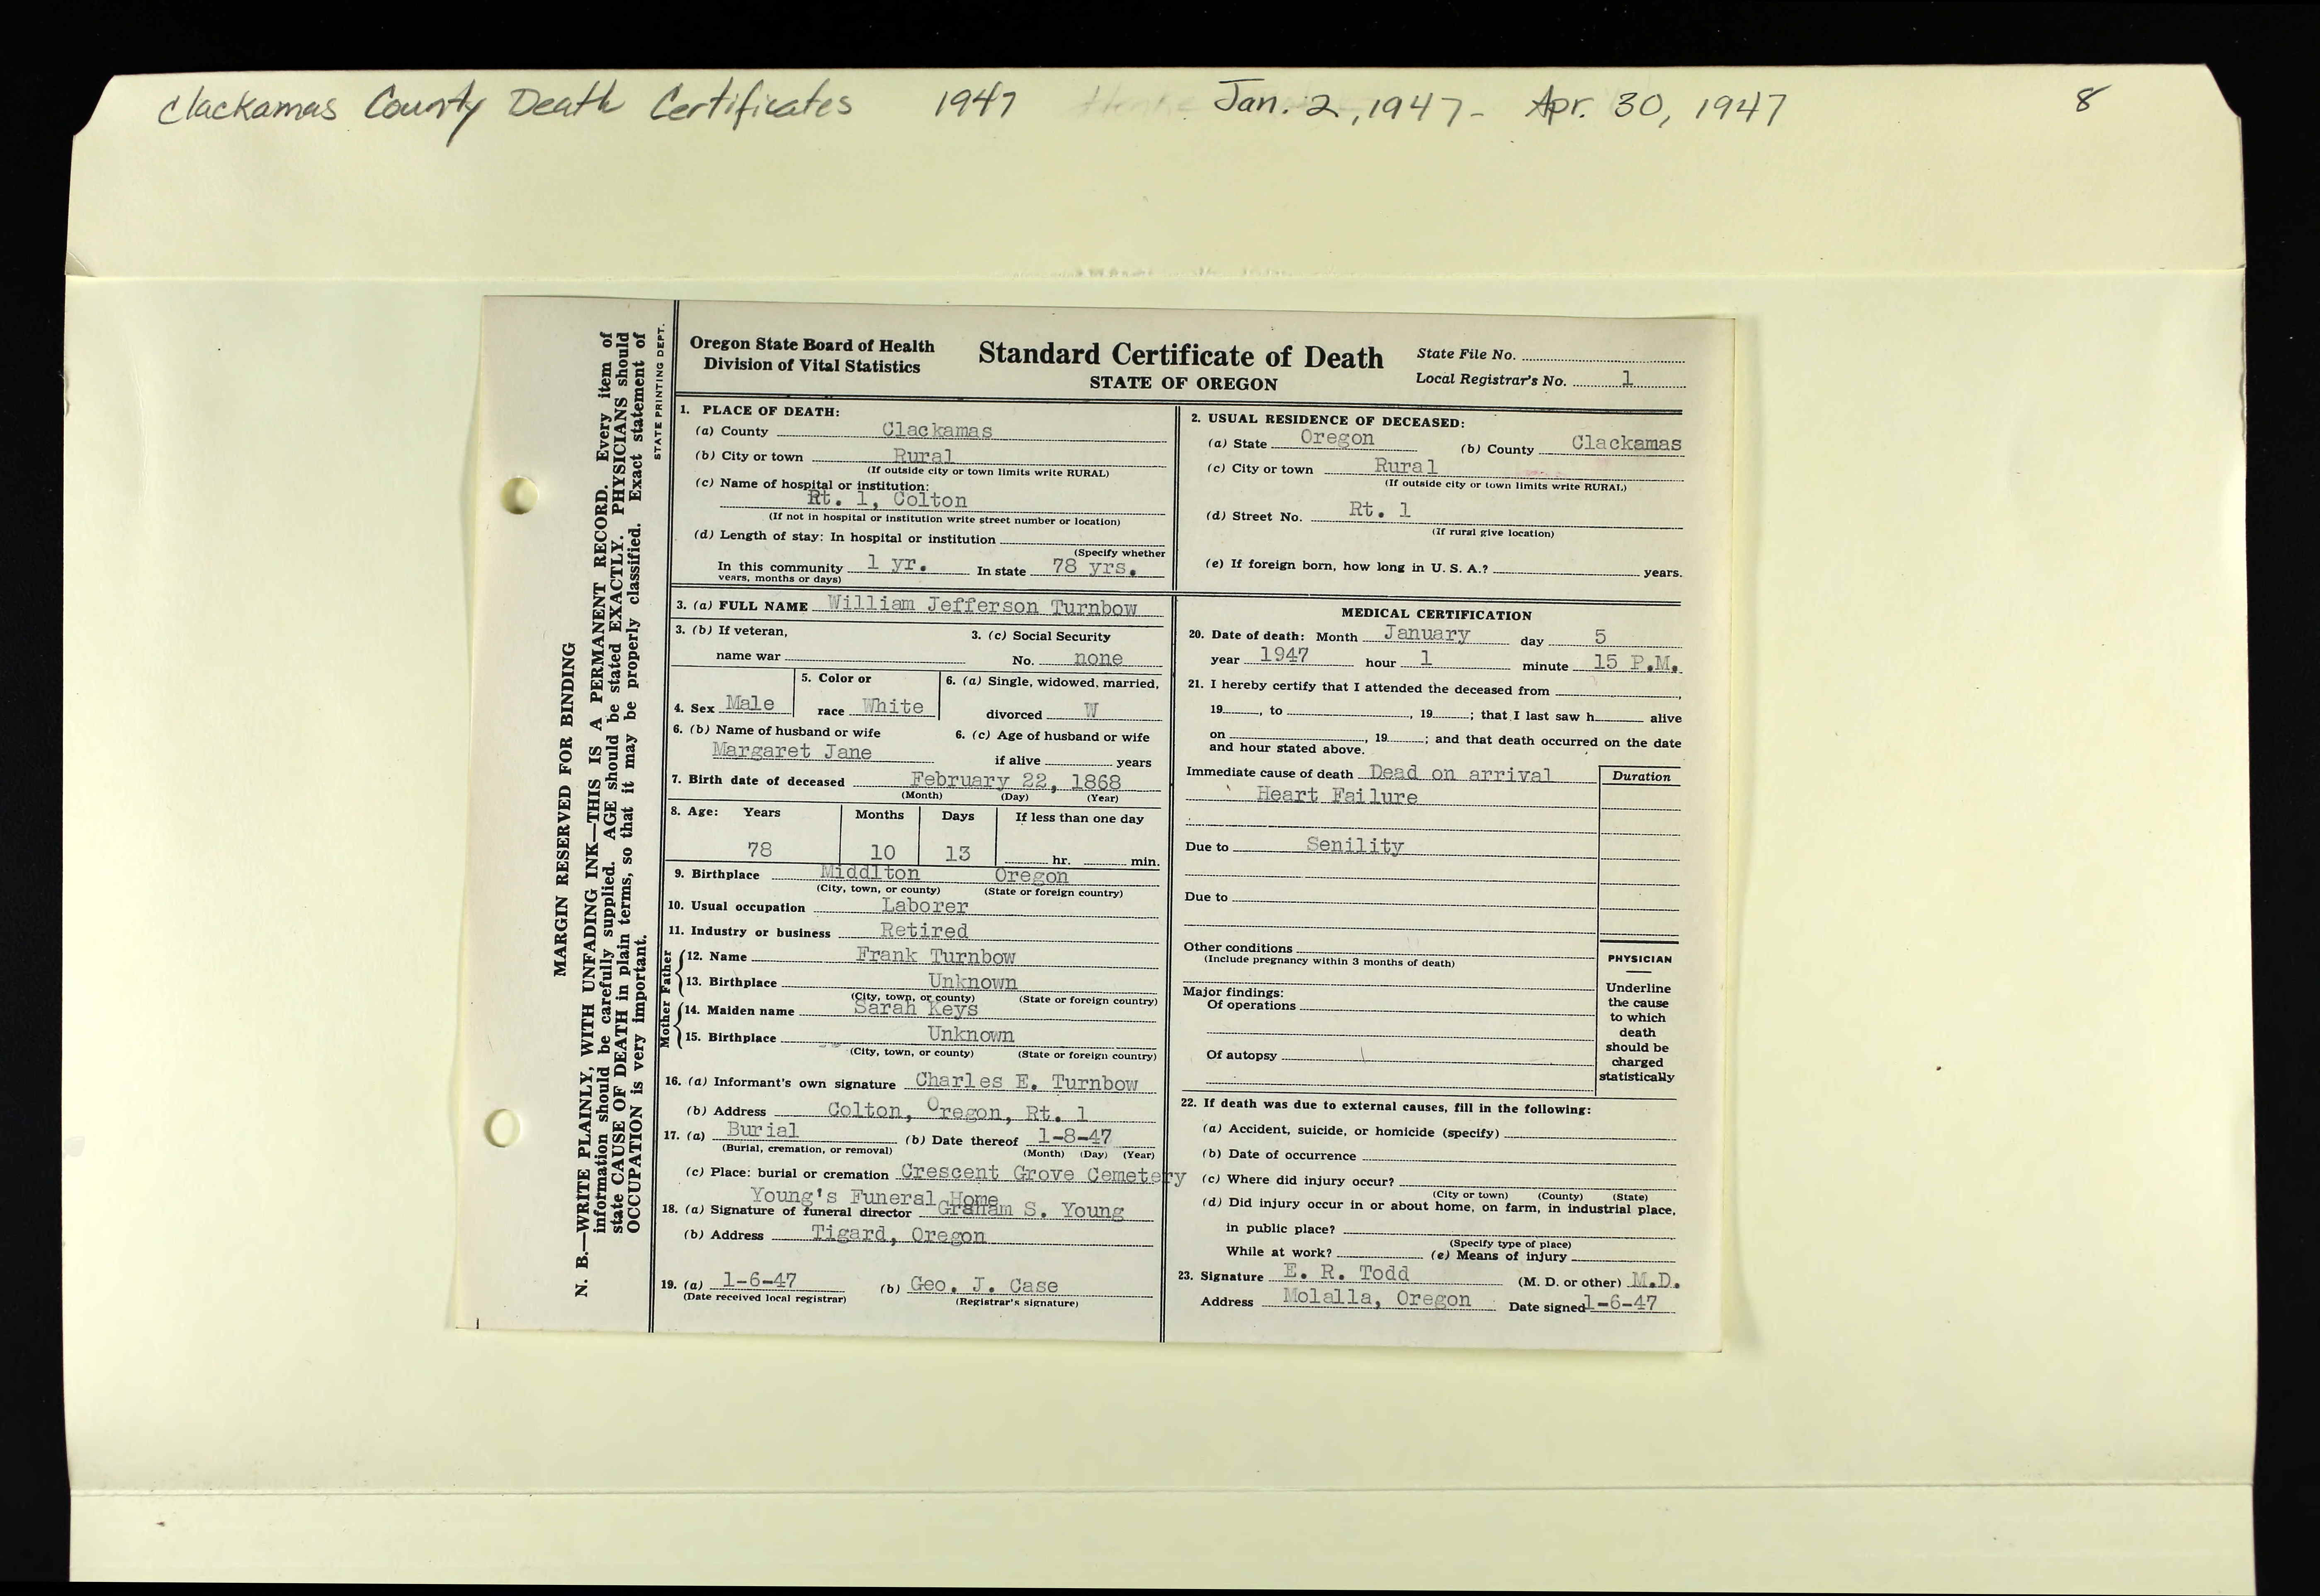 Clackamas County Death Certificates 1947 Jan. 2, 1947 - Apr. 30, 1947 8
MARGIN RESERVED FOR BINDING
N. B.—WRITE PLAINLY, WITH UNFADING INK—THIS IS A PERMANENT RECORD. Every item of
information should be carefully supplied. AGE should be stated EXACTLY. PHYSICIANS should
state CAUSE OF DEATH in plain terms, so that it may be properly classified. Exact statement of
OCCUPATION is very important.
STATE PRINTING DEPT.
Oregon State Board of Health
Division of Vital Statistics
Standard Certificate of Death
STATE OF OREGON
State File No.
Local Registrar's No. 1
1. PLACE OF DEATH:
(a) County Clackamas
(b) City or town Rural
(If outside city or town limits write RURAL)
(c) Name of hospital or institution:
Rt. 1, Colton
(If not in hospital or institution write street number or location)
(d) Length of stay: In hospital or institution
(Specify whether
In this community 1 yr. In state 78 yrs.
years, months or days)
2. USUAL RESIDENCE OF DECEASED:
(a) State Oregon (b) County Clackamas
(c) City or town Rural
(If outside city or town limits write RURAL)
(d) Street No. Rt. 1
(If rural give location)
(e) If foreign born, how long in U. S. A.? years.
3. (a) FULL NAME William Jefferson Turnbow
3. (b) If veteran, 3. (c) Social Security
name war No. none
5. Color or 6. (a) Single, widowed, married,
4. Sex Male race White divorced W
6. (b) Name of husband or wife 6. (c) Age of husband or wife
Margaret Jane if alive years
7. Birth date of deceased February 22, 1868
(Month) (Day) (Year)
8. Age: Years Months Days If less than one day
78 10 13 hr. min.
9. Birthplace Middlton Oregon
(City, town, or county) (State or foreign country)
10. Usual occupation Laborer
11. Industry or business Retired
Father
12. Name Frank Turnbow
13. Birthplace Unknown
(City, town, or county) (State or foreign country)
Mother
14. Maiden name Sarah Keys
15. Birthplace Unknown
(City, town, or county) (State or foreign country)
16. (a) Informant's own signature Charles E. Turnbow
(b) Address Colton, Oregon, Rt. 1
17. (a) Burial (b) Date thereof 1-8-47
(Burial, cremation, or removal) (Month) (Day) (Year)
(c) Place: burial or cremation Crescent Grove Cemetery
Young's Funeral Home
18. (a) Signature of funeral director Graham S. Young
(b) Address Tigard, Oregon
19. (a) 1-6-47 (b) Geo. J. Case
(Date received local registrar) (Registrar's signature)
MEDICAL CERTIFICATION
20. Date of death: Month January day 5
year 1947 hour 1 minute 15 P.M.
21. I hereby certify that I attended the deceased from ,
19 , to , 19 ; that I last saw h alive
on , 19 ; and that death occurred on the date
and hour stated above.
Immediate cause of death Dead on arrival Duration
Heart Failure
Due to Senility
Due to
Other conditions
(Include pregnancy within 3 months of death)
Major findings:
Of operations
Of autopsy
PHYSICIAN
Underline
the cause
to which
death
should be
charged
statistically
22. If death was due to external causes, fill in the following:
(a) Accident, suicide, or homicide (specify)
(b) Date of occurrence
(c) Where did injury occur?
(City or town) (County) (State)
(d) Did injury occur in or about home, on farm, in industrial place,
in public place?
(Specify type of place)
While at work? (e) Means of injury
23. Signature E. R. Todd (M. D. or other) M.D.
Address Molalla, Oregon Date signed 1-6-47